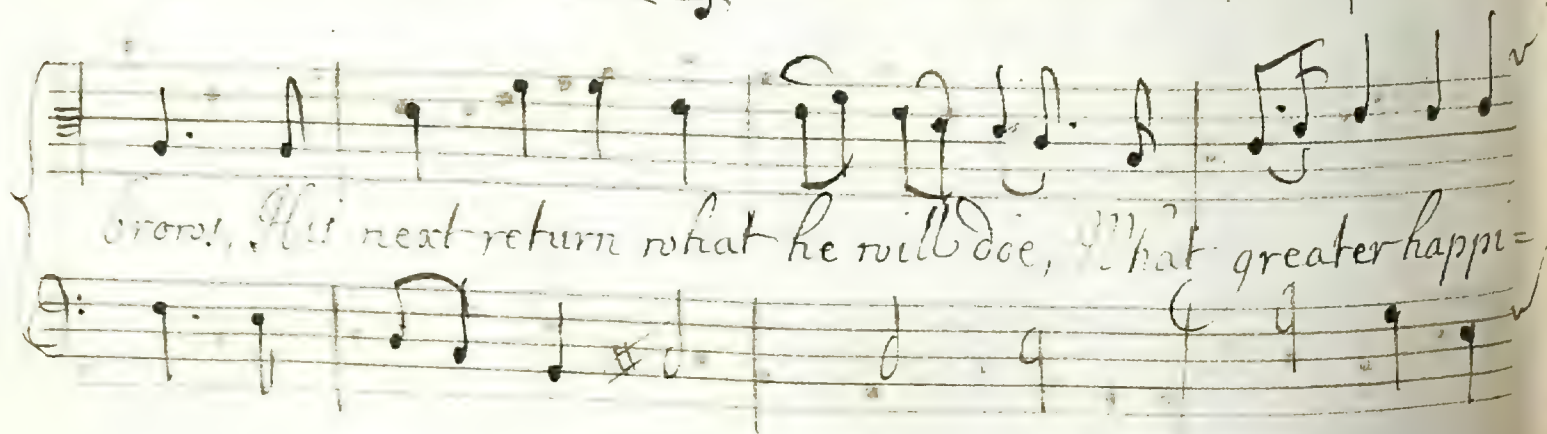 brows, His next return what he will doe, What greater happi=